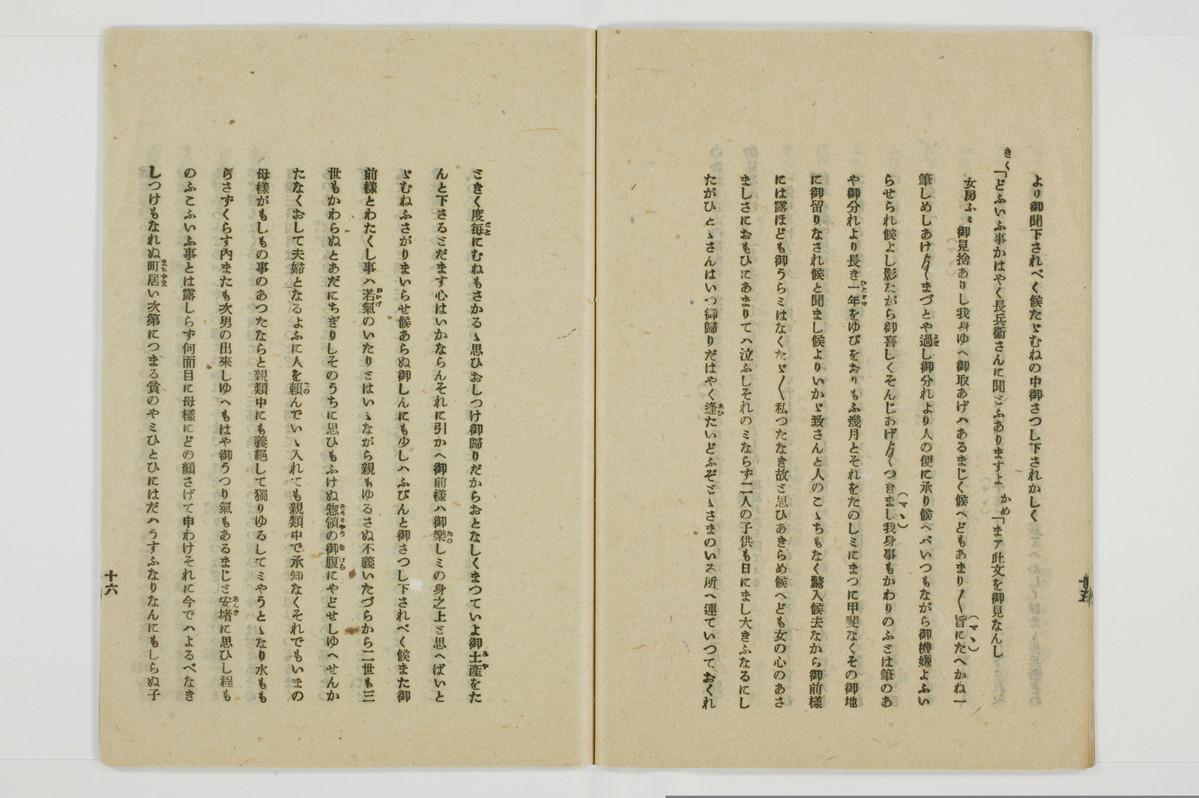 より御聞下されべく候たゞむねの中御さつし下されかしく
きく「どふいふ事かはやく長兵衞さんに聞ミふありますよ かめ「まア此文を御見なんし
女房ふミ御見捨ありし我身ゆへ御取あげハあるまじく候へどもあまり〳〵旨にたへかね一
(マヽ)
筆しめしあげ〳〵まづとや過し御分れより人の便に承り候へバいつもながら御機嫌よふい
らせられ候よし影ながら御喜しくそんじあげ〳〵つきまし我身事もかわりのふミは筆のあ
(マヽ)
や御分れより長き一年をゆびをおりもふ幾月とそれをたのしミにまつに甲斐なくその御地
に御留りなされ候と聞まし候よりいかゞ致さんと人のこゝちもなく驚入候去なから御前樣
には露ほども御うらミはなくたゞ〳〵私つたなき故ミ思ひあきらめ候へども女の心のあさ
ましさにおもひにあまりてハ泣ふしそれのミならず二人の子供も日にまし大きふなるにし
たがひとゝさんはいつ御歸りだはやく逢たいどふぞミゝさまのいる所へ連ていつておくれ
十五
ミきく度每にむねもさかるゝ思ひおしつけ御歸りだからおとなしくまつていよ御土產をた
んと下さるミだます心はいかならんそれに引かへ御前樣ハ御樂しミの身之上ミ思へばいと
ゞむねふさがりまいらせ候あらぬ御しんにも少しハふびんと御さつし下されべく候また御
前樣とわたくし事ハ若氣のいたりミはいゝながら親もゆるさぬ不義いたづらから二世も三
世もかわらぬとあだにちぎりしそのうちに思ひもふけぬ惣領の御腹にやどせしゆへせんか
たなくおして夫婦となるよふに人を賴んでいゝ入れても親類中で承知なくそれでもいまの
母樣がもしもの事のあつたならと親類中にも義絕して獨りゆるしてミやうとゝなり水もも
らさずくらす內またも次男の出來しゆへもはや御うつり氣もあるまじミ安堵に思ひし程も
のふこふいふ事とは露しらず何面目に母樣にどの顏さげて申わけそれに今でハよるべなき
しつけもなれぬ町居い次第につまる貧のやミひとひにはだハうすふなりなんにもしらぬ子
十六